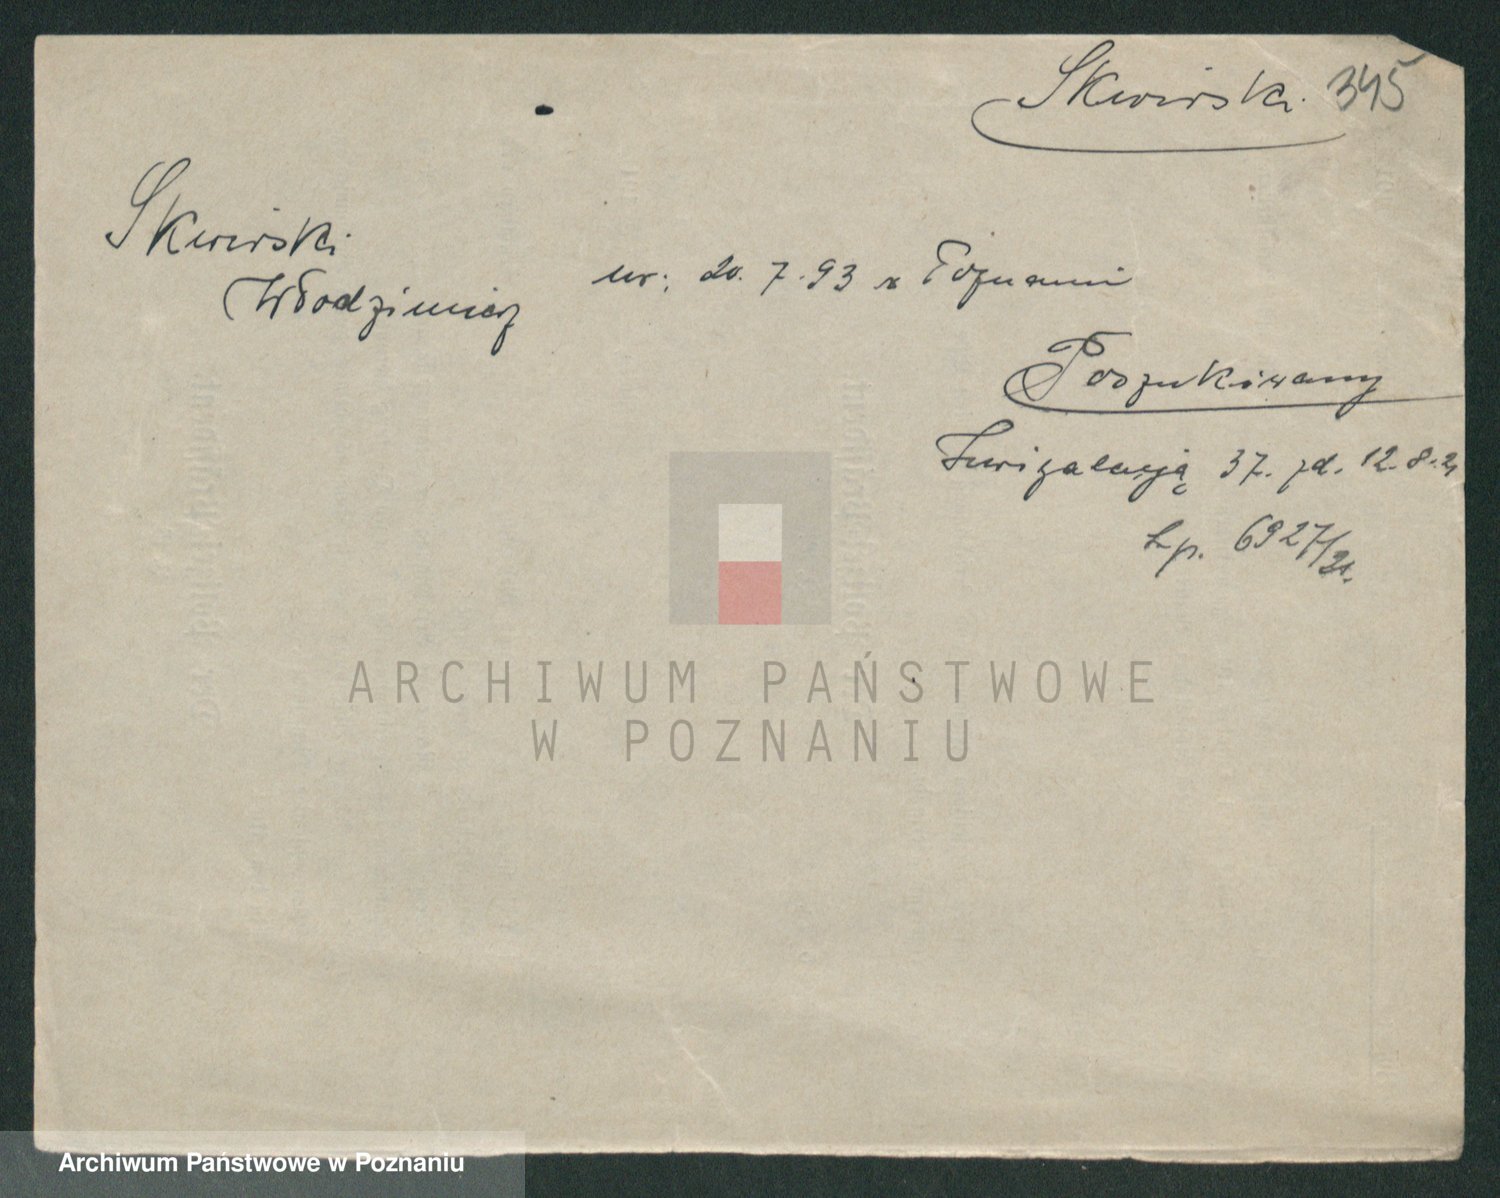 Skwirski 345
Skwirski
Włodzimierz
ur: 20. 7. 93 w Poznaniu
Poszukiwany
37. zd. 12. 8. 21
Lp. 6927/21.
ARCHIWUM PAŃSTWOWE
W POZNANIU
Archiwum Państwowe w Poznaniu